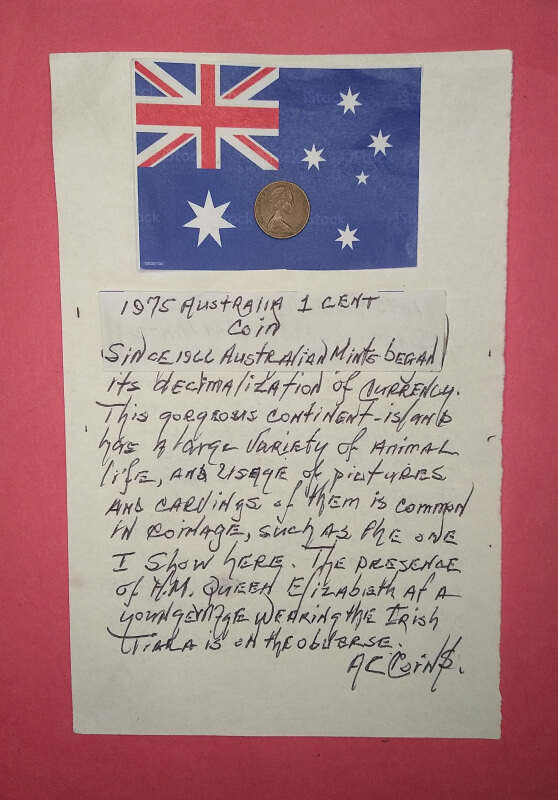 1975 AUSTRALIA 1 CENT
COIN
SINCE 1966 AUSTRALIAN MINTS BEGAN
its DECIMALIZATION OF CURRENCY.
This gorgeous continent-island
has a large variety of animal
life, AND USAGE of pictures
AND CARVINGS of them is common
IN COINAGE, such as the one
I SHOW HERE. The presence
of H.M. QUEEN Elizabeth AT A
younger age wearing the Irish
Tiara is on the obverse.
AC Coin$.
iStock